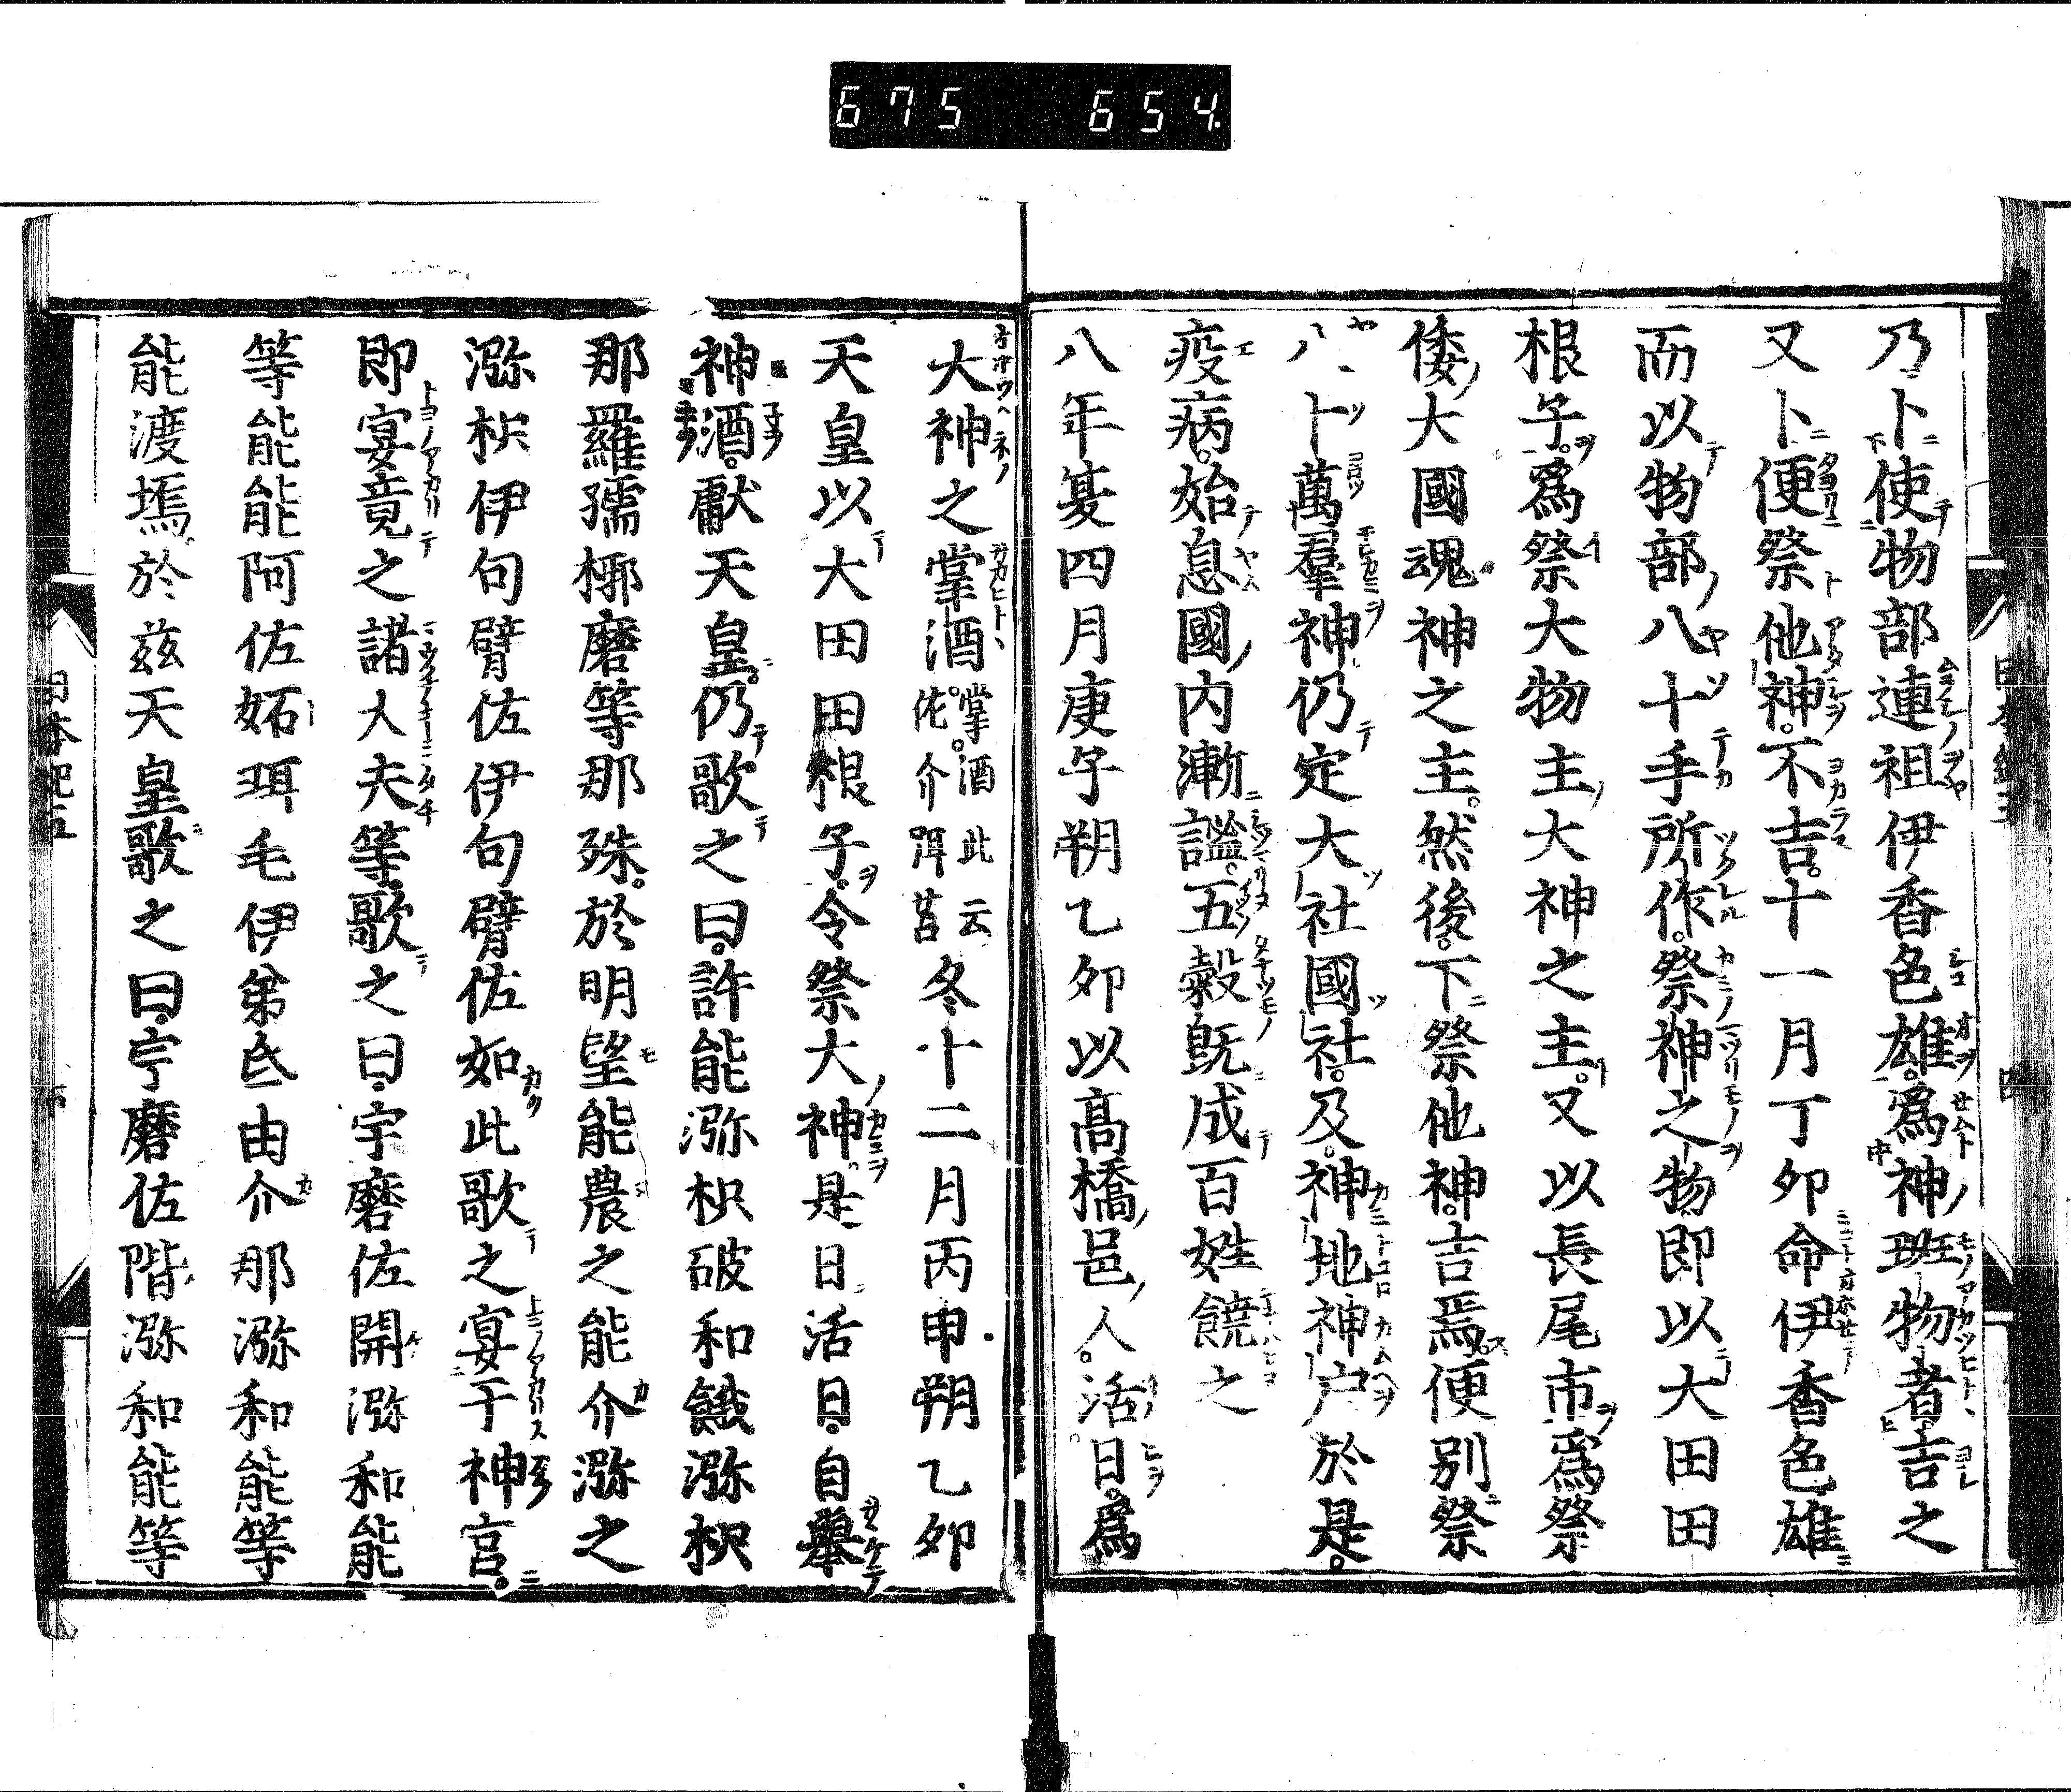 675 654
乃卜使物部連祖伊香色雄爲神班物者吉之
又卜便祭他神不吉十一月丁夘命伊香色雄
而以物部八十手所作祭神之物即以大田田
根子爲祭大物主大神之主又以長尾市爲祭
倭大國魂神之主然後下祭他神吉焉便別祭
八十萬羣神仍定大社國社及神地神户於是
疫病始息國内漸謐五穀既成百姓饒之
八年夏四月庚子朔乙夘以髙橋邑人活日爲
大神之掌酒掌酒此云佐介弭苔冬十二月丙申朔乙夘
天皇以大田田根子令祭大神是日活日自舉
神酒獻天皇仍歌之曰許能瀰枳破和餓瀰枳
那羅孺椰磨等那殊於明望能農之能介瀰之
瀰枳伊句臂佐伊句臂佐如此歌之宴于神宫
即宴竟之諸大夫等歌之曰宇磨佐開瀰和能
等能能阿佐妬珥毛伊弟氐由介那瀰和能等
能渡塢於兹天皇歌之曰宇磨佐階瀰和能等